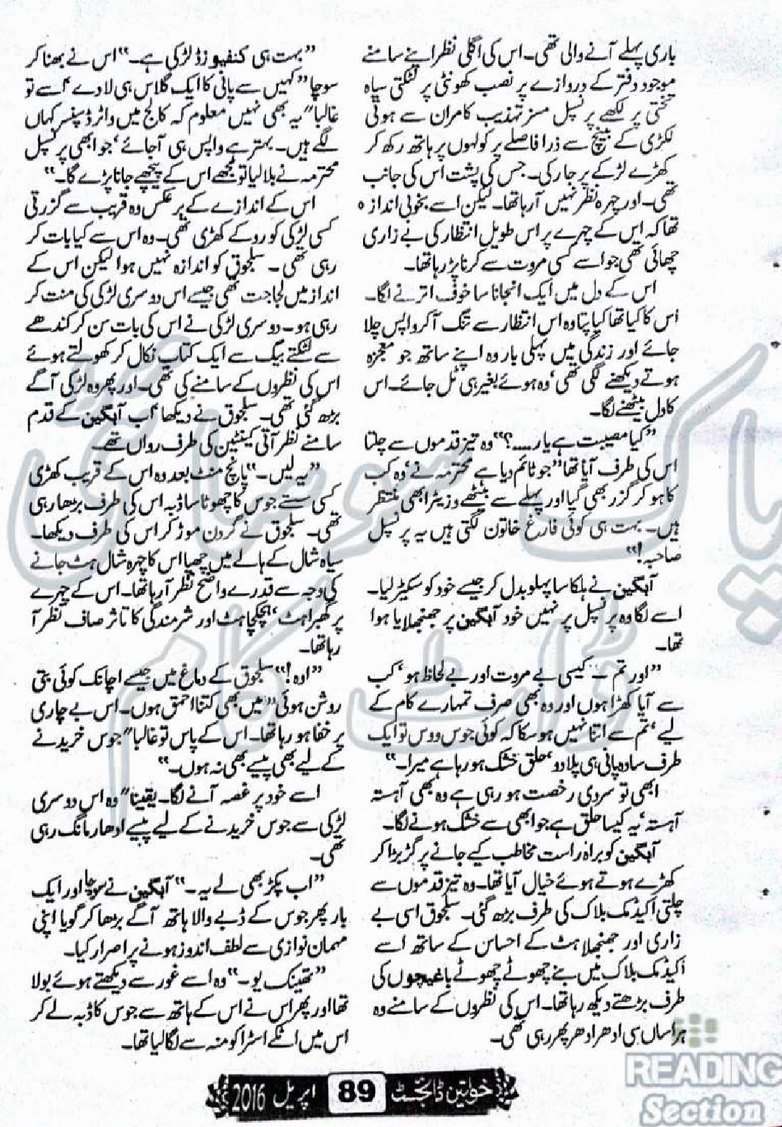 باری پہلے آنے والی تھی۔ اس کی اگلی نظر اپنے سامنے
موجود دفتر کے دروازے پر نصب کھونٹی پر لٹکتی سیاہ
تختی پر لکھے پرنسپل مسز تہذیب کامران سے ہوتی
لکڑی کے بینچ سے ذرا فاصلے پر کولہوں پر ہاتھ رکھ کر
کھڑے لڑکے پر جا رکی۔ جس کی پشت اس کی جانب
تھی۔ اور چہرہ نظر نہیں آرہا تھا۔ لیکن اسے بخوبی اندازہ
تھا کہ اس کے چہرے پر اس طویل انتظار کی بے زاری
چھائی تھی جو اسے کسی مروت سے کرنا پڑ رہا تھا۔
اس کے دل میں ایک انجانا سا خوف اترنے لگا۔
اس کا کیا تھا کیا پتا وہ اس انتظار سے تنگ آکر واپس چلا
جائے اور زندگی میں پہلی بار وہ اپنے ساتھ جو معجزہ
ہوتے دیکھنے لگی تھی‘ وہ ہوئے بغیر ہی ٹل جائے۔ اس
کا دل بیٹھنے لگا۔
”کیا مصیبت ہے یار....؟“ وہ تیز قدموں سے چلتا
اس کی طرف آیا تھا ”جو ٹائم دیا ہے محترمہ نے‘ وہ کب
کا ہو کر گزر بھی گیا اور پہلے سے بیٹھے وزیٹرا بھی منتظر
ہیں۔ بہت ہی کوئی فارغ خاتون لگتی ہیں یہ پرنسپل
صاحبہ!“
آبگین نے ہلکا سا پہلو بدل کر جیسے خود کو سکیڑ لیا۔
اسے لگا وہ پرنسپل پر نہیں خود آبگین پر جھنجھلایا ہوا
تھا۔
”اور تم ۔۔ کیسی بے مروت اور بے لحاظ ہو‘ کب
سے آیا کھڑا ہوں اور وہ بھی صرف تمہارے کام کے
لیے‘ تم سے اتنا نہیں ہوسکا کہ کوئی جوس ووس تو ایک
طرف سادہ پانی ہی پلا دو‘ حلق خشک ہو رہا ہے میرا۔“
ابھی تو سردی رخصت ہو رہی ہے وہ بھی آہستہ
آہستہ‘ یہ کیسا حلق ہے جو ابھی سے خشک ہونے لگا۔
آبگین کو براہ راست مخاطب کیے جانے پر گڑبڑا کر
کھڑے ہوتے ہوئے خیال آیا تھا۔ وہ تیز قدموں سے
چلتی اکیڈمک بلاک کی طرف بڑھ گئی۔ سلجوق اسی بے
زاری اور جھنجھلاہٹ کے احساس کے ساتھ اسے
اکیڈمک بلاک میں بنے چھوٹے چھوٹے باغیچوں کی
طرف بڑھتے دیکھ رہا تھا۔ اس کی نظروں کے سامنے وہ
ہراساں سی ادھر ادھر پھر رہی تھی۔
”بہت ہی کنفیوزڈ لڑکی ہے۔“ اس نے بھنا کر
سوچا ”کہیں سے پانی کا ایک گلاس ہی لا دے‘ اسے تو
غالبا” یہ بھی نہیں معلوم کہ کالج میں واٹر ڈسپنسر کہاں
لگے ہیں۔ بہتر ہے واپس ہی آجائے‘ جو ابھی پرنسپل
محترمہ نے بلا لیا تو مجھے اس کے پیچھے جانا پڑے گا۔“
اس کے اندازے کے برعکس وہ قریب سے گزرتی
کسی لڑکی کو روکے کھڑی تھی۔ وہ اس سے کیا بات کر
رہی تھی ۔ سلجوق کو اندازہ نہیں ہوا لیکن اس کے
انداز میں لجاجت تھی جیسے اس دوسری لڑکی کی منت کر
رہی ہو۔ دوسری لڑکی نے اس کی بات سن کر کندھے
سے لٹکتے بیگ سے ایک کتاب نکال کر کھولتے ہوئے
اس کی نظروں کے سامنے کی تھی۔ اور پھر وہ لڑکی آگے
بڑھ گئی تھی۔ سلجوق نے دیکھا‘ اب آبگین کے قدم
سامنے نظر آتی کینٹین کی طرف رواں تھے۔
”یہ لیں۔“ پانچ منٹ بعد وہ اس کے قریب کھڑی
کسی سستے جوس کا چھوٹا سا ڈبہ اس کی طرف بڑھا رہی
تھی۔ سلجوق نے گردن موڑ کر اس کی طرف دیکھا۔
سیاہ شال کے ہالے میں چھپا اس کا چہرہ شال ہٹ جانے
کی وجہ سے قدرے واضح نظر آرہا تھا۔ اس کے چہرے
پر گھبراہٹ‘ ہچکچاہٹ اور شرمندگی کا تاثر صاف نظر آ
رہا تھا۔
”اوہ!“ سلجوق کے دماغ میں جیسے اچانک کوئی بتی
روشن ہوئی ”میں بھی کتنا احمق ہوں۔ اس بے چاری
پر خفا ہو رہا تھا۔ اس کے پاس تو غالبا” جوس خریدنے
کے لیے بھی پیسے بھی نہ ہوں۔“
اسے خود پر غصہ آنے لگا۔ یقینا” وہ اس دوسری
لڑکی سے جوس خریدنے کے لیے پیسے ادھار مانگ رہی
تھی۔
”اب پکڑ بھی لے یہ۔“ آبگین نے سوچا اور ایک
بار پھر جوس کے ڈبے والا ہاتھ آگے بڑھا کر گویا اپنی
مہمان نوازی سے لطف اندوز ہونے پر اصرار کیا۔
”تھینک یو۔“ وہ اسے غور سے دیکھتے ہوئے بولا
تھا اور پھر اس نے اس کے ہاتھ سے جوس کا ڈبہ لے کر
اس میں اٹکے اسٹرا کو منہ سے لگا لیا تھا۔
خواتین ڈائجسٹ 89 اپریل 2016
پاک سوسائٹی
ڈاٹ کام
READING
Section